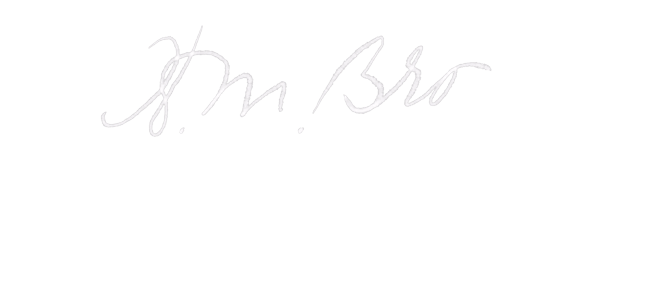 M. Bro